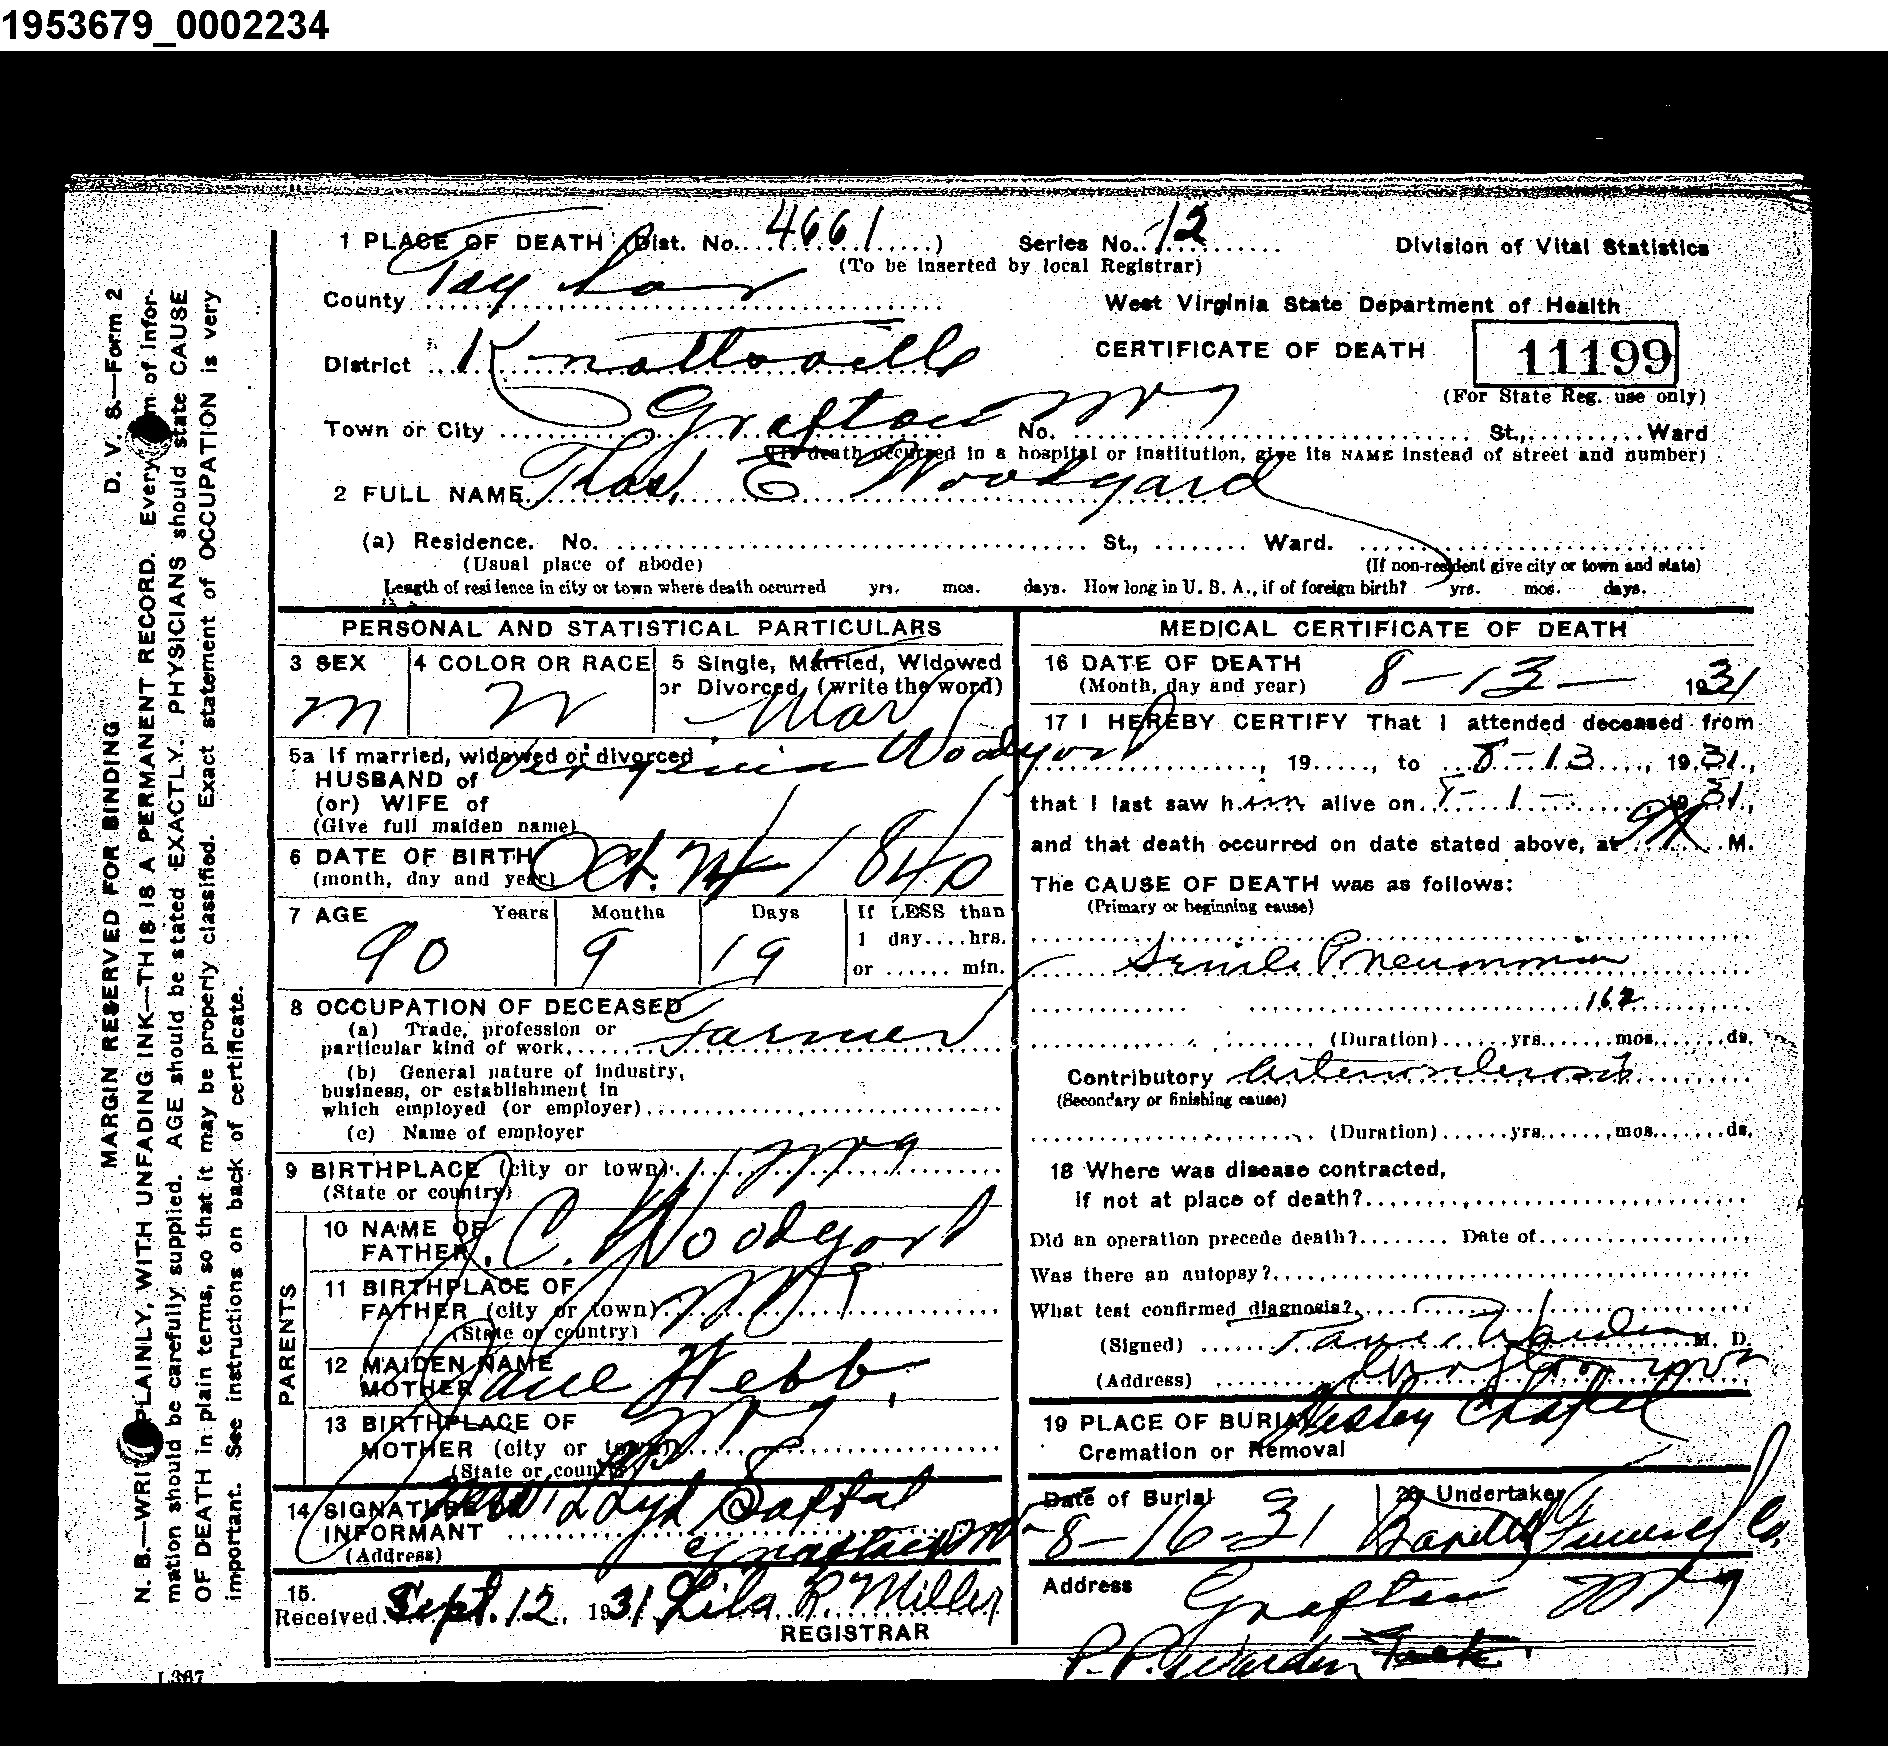 1953679_0002234
1 PLACE OF DEATH (Dist. No. 4661) Series No. 12 Division of Vital Statistics
(To be inserted by local Registrar)
County Taylor West Virginia State Department of Health
District Knottsville CERTIFICATE OF DEATH 11199
(For State Reg. use only)
Town or City Grafton W Va No. St., Ward
(If death occurred in a hospital or institution, give its NAME instead of street and number)
2 FULL NAME Thos. E Woodyard
(a) Residence. No. St., Ward.
(Usual place of abode) (If non-resident give city or town and state)
Length of residence in city or town where death occurred yrs. mos. days. How long in U. S. A., if of foreign birth? yrs. mos. days.
PERSONAL AND STATISTICAL PARTICULARS
3 SEX
M
4 COLOR OR RACE
W
5 Single, Married, Widowed
or Divorced, (write the word)
Mar
5a If married, widowed or divorced
HUSBAND of Virginia Woodyard
(or) WIFE of
(Give full maiden name)
6 DATE OF BIRTH Oct. 24 1840
(month, day and year)
7 AGE Years Months Days If LESS than
1 day....hrs.
90 9 19 or ...... min.
8 OCCUPATION OF DECEASED
(a) Trade, profession or
particular kind of work Farmer
(b) General nature of industry,
business, or establishment in
which employed (or employer)
(c) Name of employer
9 BIRTHPLACE (city or town) W Va
(State or country)
PARENTS
10 NAME OF
FATHER J. C. Woodyard
11 BIRTHPLACE OF
FATHER (city or town) W Va
(State or country)
12 MAIDEN NAME
MOTHER Jane Webb
13 BIRTHPLACE OF
MOTHER (city or town) W Va
(State or country)
14 SIGNATURE
INFORMANT Lloyd
(Address) Grafton W Va
15.
Received Sept. 12, 1931 Lila R. Miller
REGISTRAR
MEDICAL CERTIFICATE OF DEATH
16 DATE OF DEATH 8-13- 1931
(Month, day and year)
17 I HEREBY CERTIFY That I attended deceased from
, 19....., to 8-13, 1931,
that I last saw him alive on 8-1-, 1931,
and that death occurred on date stated above, at 9 A. M.
The CAUSE OF DEATH was as follows:
(Primary or beginning cause)
Senile Pneumonia
162
(Duration) yrs. mos. ds.
Contributory Arteriosclerosis
(Secondary or finishing cause)
(Duration) yrs. mos. ds.
18 Where was disease contracted,
if not at place of death?
Did an operation precede death? Date of
Was there an autopsy?
What test confirmed diagnosis?
(Signed) Warden M. D.
(Address) Grafton W Va
19 PLACE OF BURIAL Wesley Chapel
Cremation or Removal
Date of Burial
8-16-31
20 Undertaker
Funeral Co.
Address Grafton W Va
P. P. Warden
MARGIN RESERVED FOR BINDING D. V. S.—Form 2
N. B.—WRITE PLAINLY, WITH UNFADING INK—THIS IS A PERMANENT RECORD. Every item of infor-
mation should be carefully supplied. AGE should be stated EXACTLY. PHYSICIANS should state CAUSE
OF DEATH in plain terms, so that it may be properly classified. Exact statement of OCCUPATION is very
important. See instructions on back of certificate.
L367